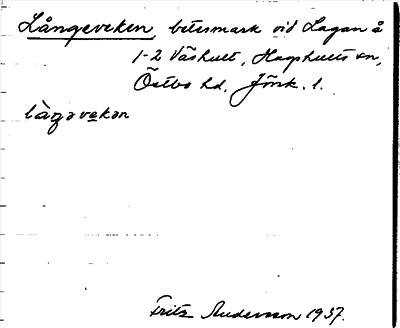 Långeveken, betesmark vid Lagan å
1-2 Våshult, Hagshults sn,
Östbo hd, Jönk. l.
làŋəvekən
Fritz Andersson 1937.